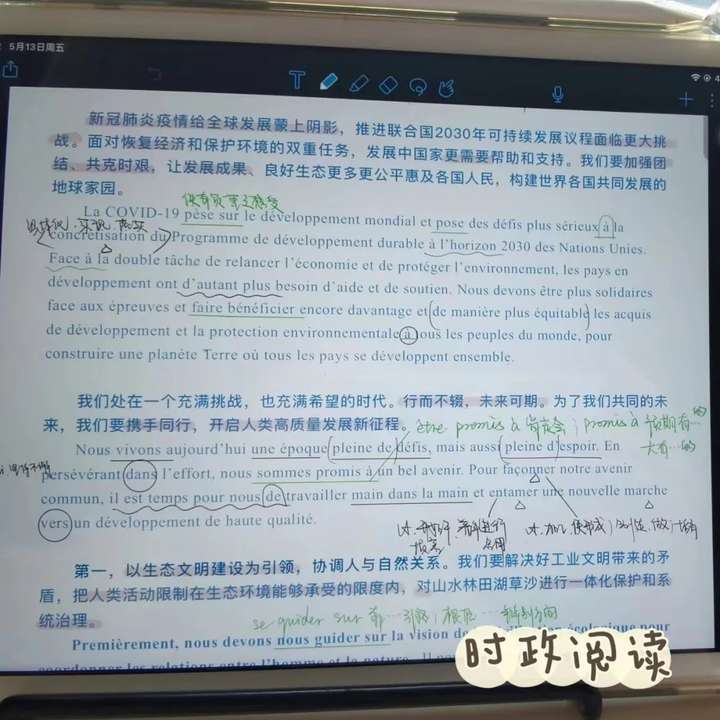 5月13日周五
新冠肺炎疫情给全球发展蒙上阴影，推进联合国2030年可持续发展议程面临更大挑
战。面对恢复经济和保护环境的双重任务，发展中国家更需要帮助和支持。我们要加强团
结、共克时艰，让发展成果、良好生态更多更公平惠及各国人民，构建世界各国共同发展的
地球家园。
La COVID-19 pèse sur le développement mondial et pose des défis plus sérieux à la
concrétisation du Programme de développement durable à l'horizon 2030 des Nations Unies.
Face à la double tâche de relancer l'économie et de protéger l'environnement, les pays en
développement ont d'autant plus besoin d'aide et de soutien. Nous devons être plus solidaires
face aux épreuves et faire bénéficier encore davantage et de manière plus équitable les acquis
de développement et la protection environnementale à tous les peuples du monde, pour
construire une planète Terre où tous les pays se développent ensemble.
我们处在一个充满挑战，也充满希望的时代。行而不辍，未来可期。为了我们共同的未
来，我们要携手同行，开启人类高质量发展新征程。
être promis à 肯定会；promis à 预期有…的
大有…的
Nous vivons aujourd'hui une époque pleine de défis, mais aussi pleine d'espoir. En
persévérant dans l'effort, nous sommes promis à un bel avenir. Pour façonner notre avenir
commun, il est temps pour nous de travailler main dans la main et entamer une nouvelle marche
vers un développement de haute qualité.
第一，以生态文明建设为引领，协调人与自然关系。我们要解决好工业文明带来的矛
盾，把人类活动限制在生态环境能够承受的限度内，对山水林田湖草沙进行一体化保护和系
统治理。
se guider sur
Premièrement, nous devons nous guider sur la vision de
écologique pour
coordonner les relations entre l'homme et la nature.
时政阅读